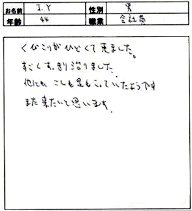 お名前 I.Y 性別 男
年齢 44 職業 会社員
くびこりがひどくて来ました。
すごくすっきり治りました。
他にも、こしも足もこっていたようです
また来たいと思います。